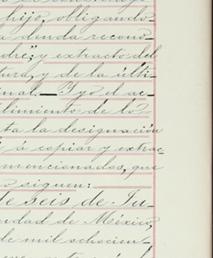 hijo, obligando
a deuda recono
dre"; y extracto del
tura, y de la últi
nal.— Y yo el ac
limiento de lo
ta la designación
é á copiar y extrac
mencionados, que
o siguen:
te seis de Ju
udad de México,
de mil ochocien